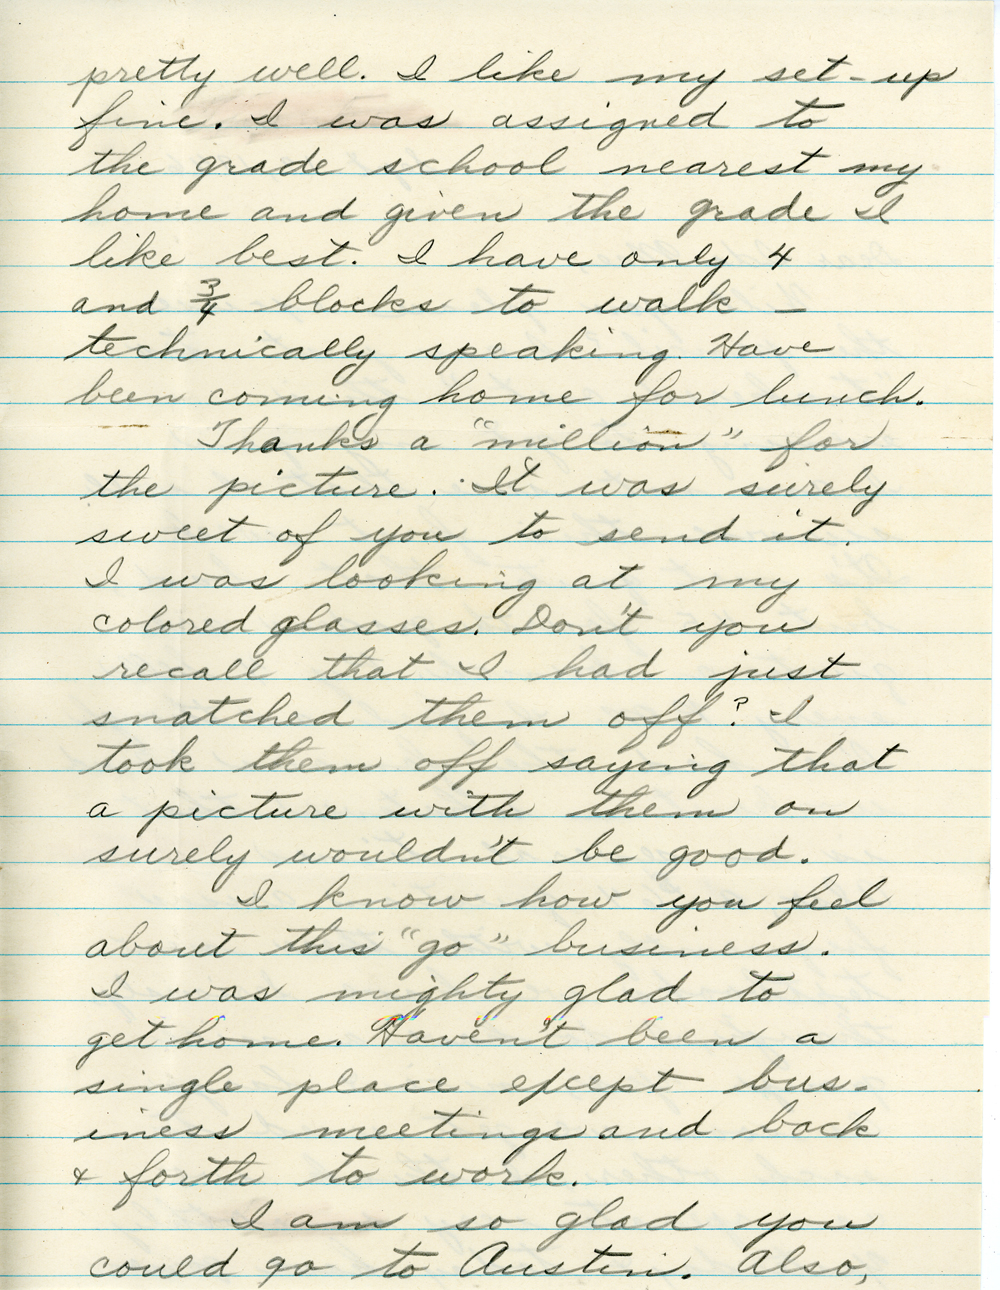 pretty well. I like my set-up
fine. I was assigned to
the grade school nearest my
home and given the grade I
like best. I have only 4
and 3/4 blocks to walk —
technically speaking. Have
been coming home for lunch.
Thanks a "million" for
the picture. It was surely
sweet of you to send it.
I was looking at my
colored glasses. Don't you
recall that I had just
snatched them off? I
took them off saying that
a picture with them on
surely wouldn't be good.
I know how you feel
about this "go" business.
I was mighty glad to
get home. Haven't been a
single place except bus-
iness meetings and back
& forth to work.
I am so glad you
could go to Austin. Also,